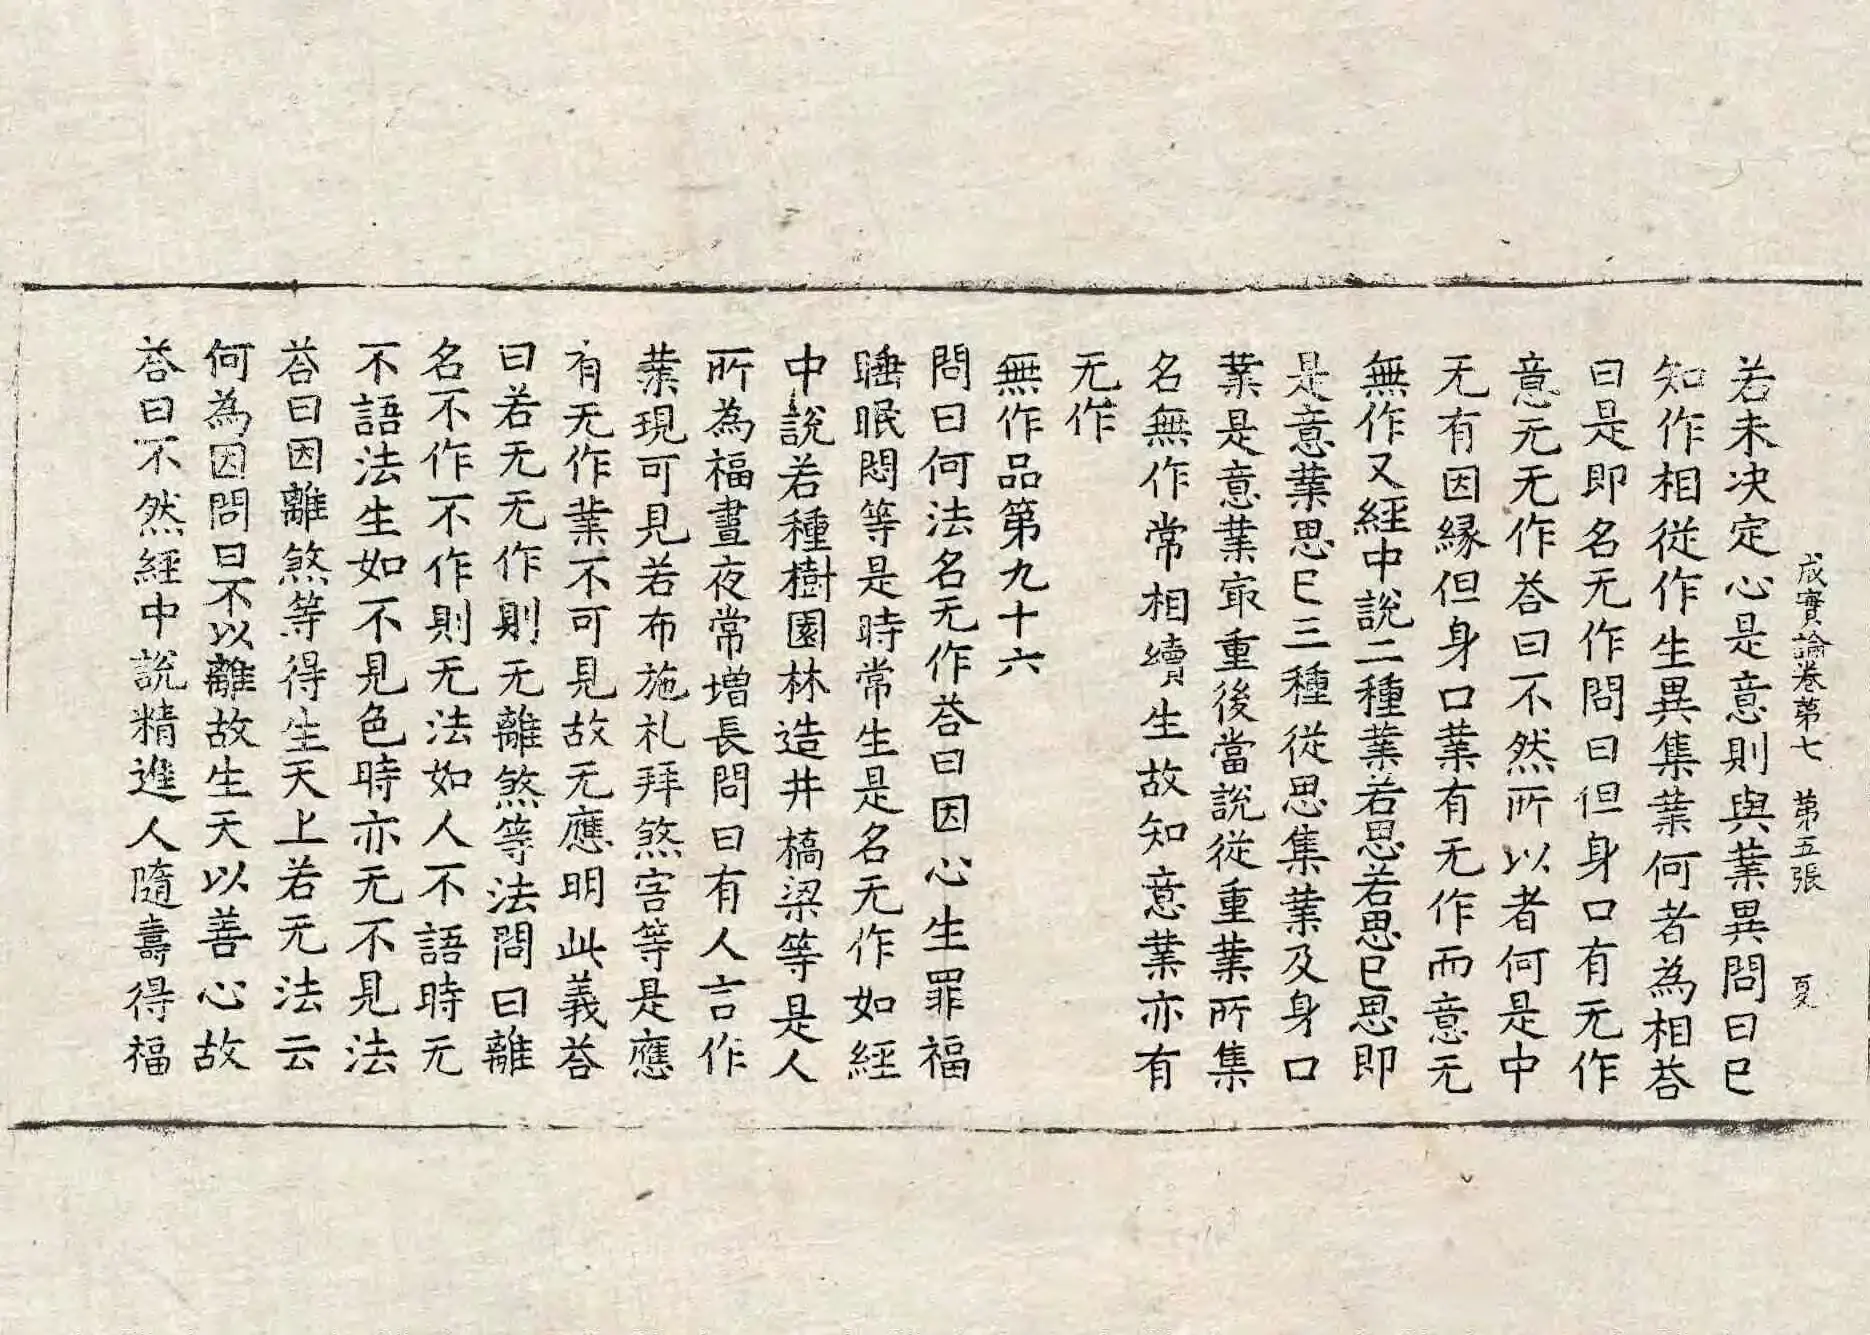 成實論卷第七　第五張　夏
若未決定心是意則與業異問曰已
知作相從作生異集業何者為相荅
曰是即名无作問曰但身口有无作
意无无作荅曰不然所以者何是中
无有因縁但身口業有无作而意无
無作又經中說二種業若思若思已思即
是意業思已三種從思集業及身口
業是意業冣重後當說從重業所集
名無作常相續生故知意業亦有
无作
無作品第九十六
問曰何法名无作荅曰因心生罪福
睡眠悶等是時常生是名无作如經
中說若種樹園林造井橋梁等是人
所為福晝夜常增長問曰有人言作
業現可見若布施礼拜煞害等是應
有无作業不可見故无應明此義荅
曰若无无作則无離煞等法問曰離
名不作不作則无法如人不語時无
不語法生如不見色時亦无不見法
荅曰因離煞等得生天上若无法云
何為因問曰不以離故生天以善心故
荅曰不然經中說精進人隨壽得福